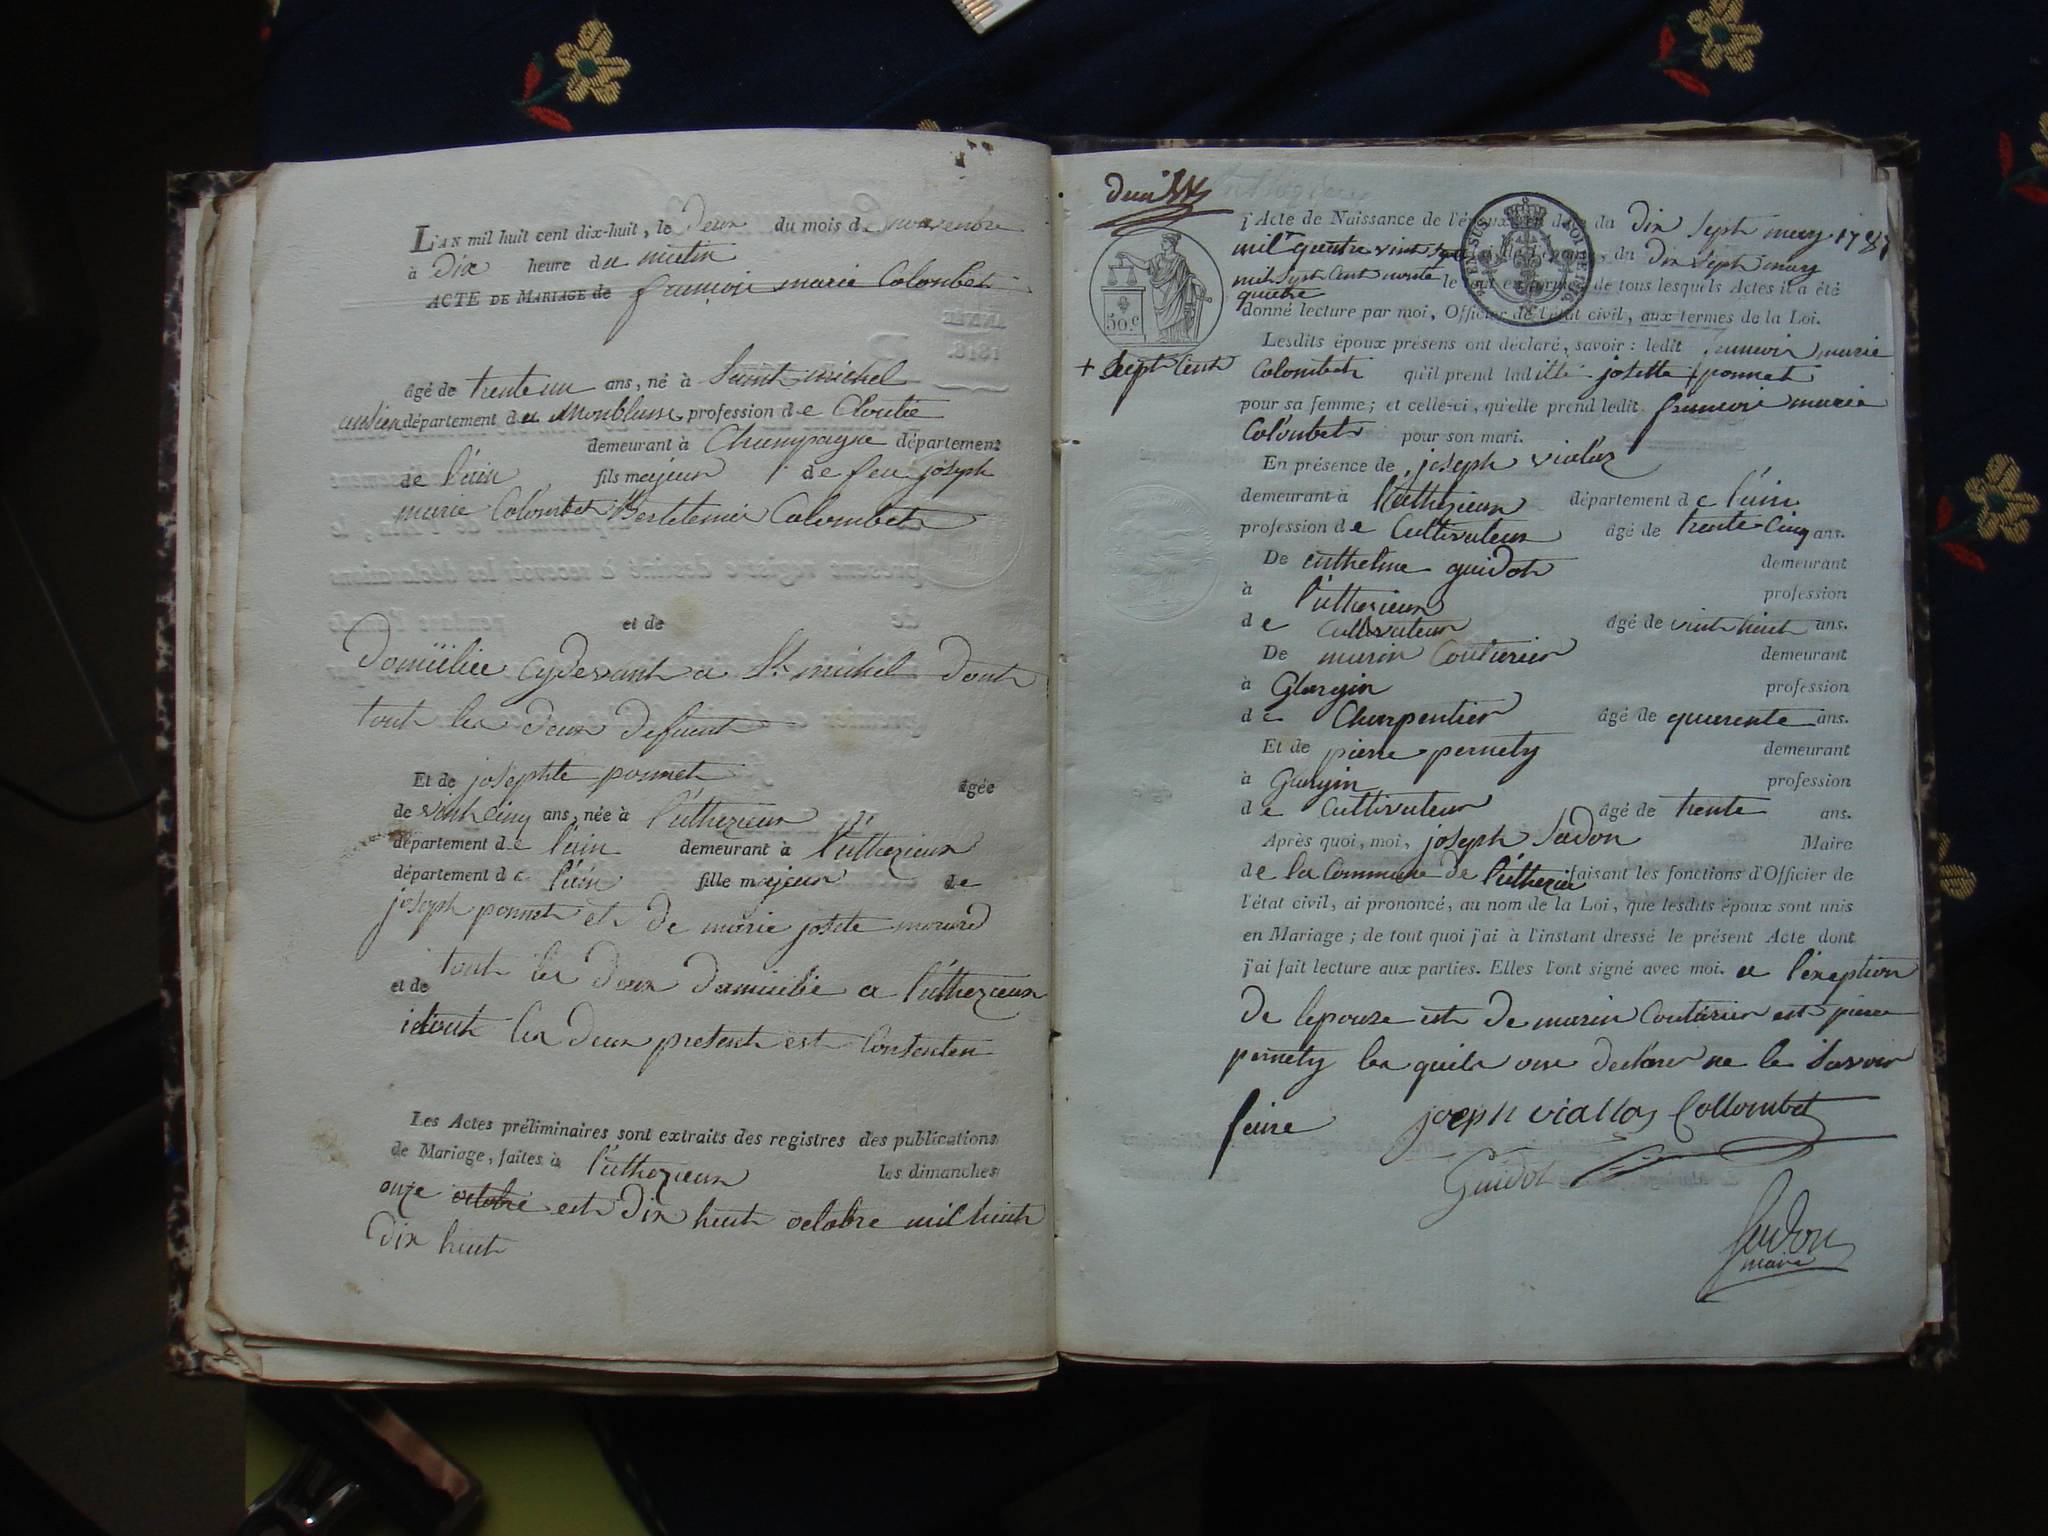 L'AN mil huit cent dix-huit, le Deux du mois de novembre
à Dix heure du matin
ACTE DE MARIAGE de francoir marie Colombet
âgé de trente un ans, né à Saint michel
ansien département du Monblanc profession de Cloutie
demeurant à Champagne département
de l'ain fils majeur de feu joseph
marie Colombet Bertelemie Colombet
et de
Domicilier cydevant a St michel dont
tout les deux defunt
Et de josephte ponnet âgée
de vint cinq ans, née à luthezieux
département de l'ain demeurant à luthezieux
département de l'ain fille majeur de
joseph ponnet et de marie josete morard
tout les deux domicilie a luthezieux
et de
tout les deux present est Consenten
Les Actes préliminaires sont extraits des registres des publications
de Mariage, faites à luthezieux les dimanches
onze octobre est dix huit octobre mil huit
Dix huit
l'Acte de Naissance de l'époux en date du Dix Sept may 1787
mil quatre vint sept de l'épouse, du Dix Sept may
mil Sept Cent nonte quatre le tout en forme; de tous lesquels Actes il a été
donné lecture par moi, Officier de l'état civil, aux termes de la Loi.
50 c
Lesdits époux présens ont déclaré, savoir: ledit francoir marie
+ Sept Cent
Colombet qu'il prend laditte josette ponnet
pour sa femme; et celle-ci, qu'elle prend ledit francoir marie
Colombet pour son mari.
En présence de joseph vialaz
demeurant à luthezieux département de l'ain
profession de Cultivateur âgé de trente Cinq ans.
De enthelme guidot demeurant
à luthezieux profession
de Cultivateur âgé de vint huit ans.
De marin Couturier demeurant
à Glargin profession
de Charpentier âgé de quarente ans.
Et de pierre pernety demeurant
à Glargin profession
de Cultivateur âgé de trente ans.
Après quoi, moi, joseph Sadon Maire
de la Commune de luthezieu faisant les fonctions d'Officier de
l'état civil, ai prononcé, au nom de la Loi, que lesdits époux sont unis
en Mariage; de tout quoi j'ai à l'instant dressé le présent Acte dont
j'ai fait lecture aux parties. Elles l'ont signé avec moi. a l'exeption
de lepouze est de marin Couturier est pierre
pernety les quils on declarer ne le Savoir
faire joseph viallaz Collombet
Guidot
Sadon
maire